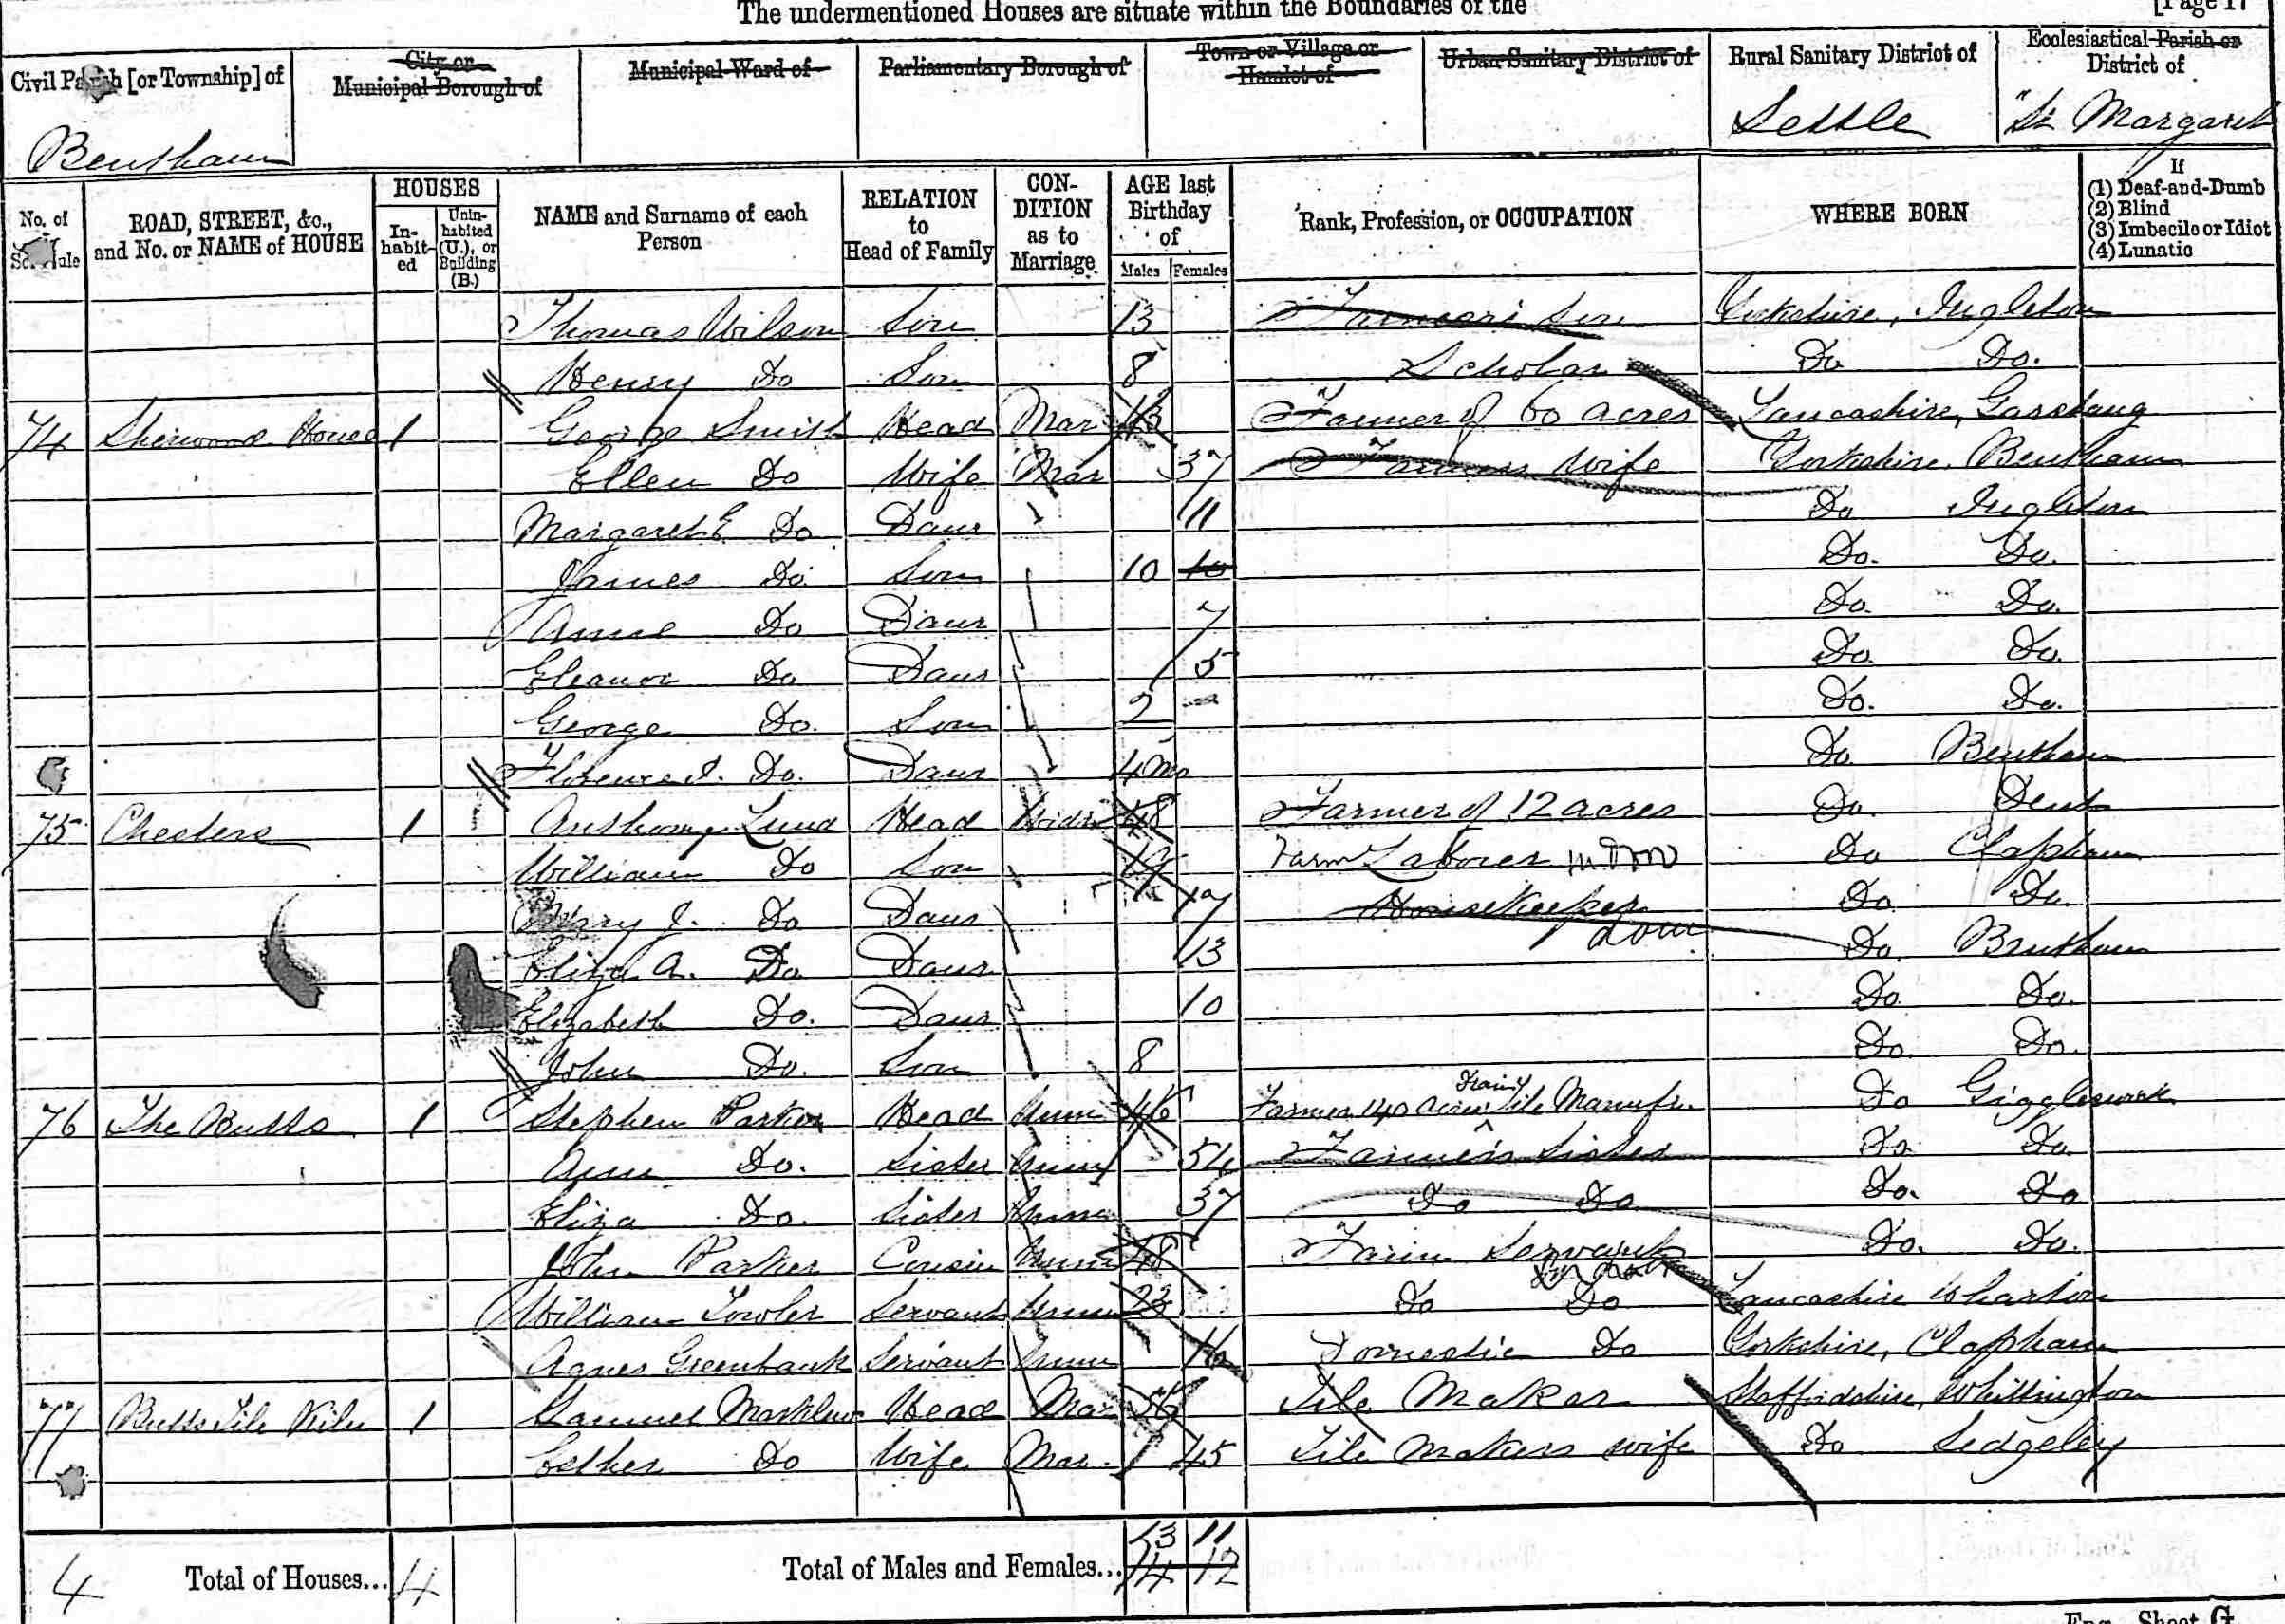 The undermentioned Houses are situate within the Boundaries of the
[Page 17
Civil Parish [or Township] of
City or Municipal Borough of
Municipal Ward of
Parliamentary Borough of
Town or Village or Hamlet of
Urban Sanitary District of
Rural Sanitary District of
Ecclesiastical Parish or District of
Bentham
Settle
St Margaret
No. of Schedule
ROAD, STREET, &c., and No. or NAME of HOUSE
HOUSES
In-habit-ed
Unin-habited (U.), or Building (B.)
NAME and Surname of each Person
RELATION to Head of Family
CON-DITION as to Marriage
AGE last Birthday of
Males Females
Rank, Profession, or OCCUPATION
WHERE BORN
If
(1) Deaf-and-Dumb
(2) Blind
(3) Imbecile or Idiot
(4) Lunatic
Thomas Wilson Son 13 Farmers Son Yorkshire, Ingleton
Henry Do Son 8 Scholar Do Do.
74 Sherwood House 1 George Smith Head Mar 43 Farmer of 60 acres Lancashire, Garstang
Ellen Do Wife Mar 37 Farmers Wife Yorkshire, Bentham
Margaret E Do Daur 11 Do Ingleton
James Do Son 10 10 Do. Do.
Anne Do Daur 7 Do. Do.
Eleanor Do Daur 5 Do. Do.
George Do. Son 2 Do. Do.
Florence I. Do. Daur 4 mo Do Bentham
75 Chesters 1 Anthony Lund Head Widr 48 Farmer of 12 acres Do. Dent
William Do Son Farm Laborer Do Clapham
Mary J. Do Daur 17 Housekeeper Dom Do. Do.
Eliza A. Do Daur 13 Do. Bentham
Elizabeth Do. Daur 10 Do. Do.
John Do. Son 8 Do. Do.
76 The Butts 1 Stephen Parker Head Unm 46 Farmer 140 acres Drain Tile Manufr. Do Giggleswick
Ann Do. Sister Unm 54 Farmer's Sister Do. Do
Eliza Do. Sister Unm 37 Do Do Do. Do
John Parker Cousin Unm 48 Farm Servant Do. Do.
William Towler Servant Unm 23 Do Do Lancashire Wharton
Agnes Greenbank Servant Unm 16 Domestic Do Yorkshire, Clapham
77 Butts Tile Kiln 1 Samuel Marklew Head Mar 56 Tile Maker Staffordshire, Whittington
Esther Do Wife Mar. 45 Tile Makers wife Do Sedgeley
13 11
4 Total of Houses... 4 Total of Males and Females... 14 12
Eng.—Sheet G